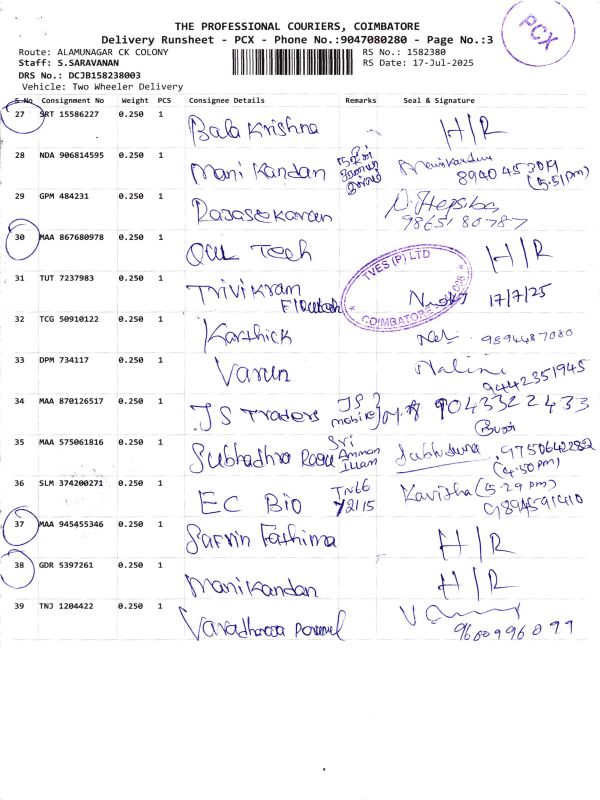 THE PROFESSIONAL COURIERS, COIMBATORE
PCX
Delivery Runsheet - PCX - Phone No.:9047080280 - Page No.:3
Route: ALAMUNAGAR CK COLONY
RS No.: 1582380
Staff: S.SARAVANAN
RS Date: 17-Jul-2025
DRS No.: DCJB158238003
Vehicle: Two Wheeler Delivery
S No Consignment No Weight PCS Consignee Details Remarks Seal & Signature
27 SRT 15586227 0.250 1 Bala Krishna H/R
28 NDA 906814595 0.250 1 Mani Kandan
(5.51pm)
29 GPM 484231 0.250 1 Rajasekaran
9865180787
30 MAA 867680978 0.250 1 Tech H/R
TVES (P) LTD
COIMBATORE
31 TUT 7237983 0.250 1 Trivikram 17/7/25
32 TCG 50910122 0.250 1 Karthick 9894487080
33 DPM 734117 0.250 1 Varun Malini
9442351945
34 MAA 870126517 0.250 1 JS Traders JS mobile 9043322433
35 MAA 575061816 0.250 1 Subhadhra Sri Amman Illam 9750642282
(4.50pm)
36 SLM 374200271 0.250 1 EC Bio TN66 Y2115 Kavitha (5.29 pm)
37 MAA 945455346 0.250 1 Safrin Fathima H/R
38 GDR 5397261 0.250 1 Manikandan H/R
39 TNJ 1204422 0.250 1